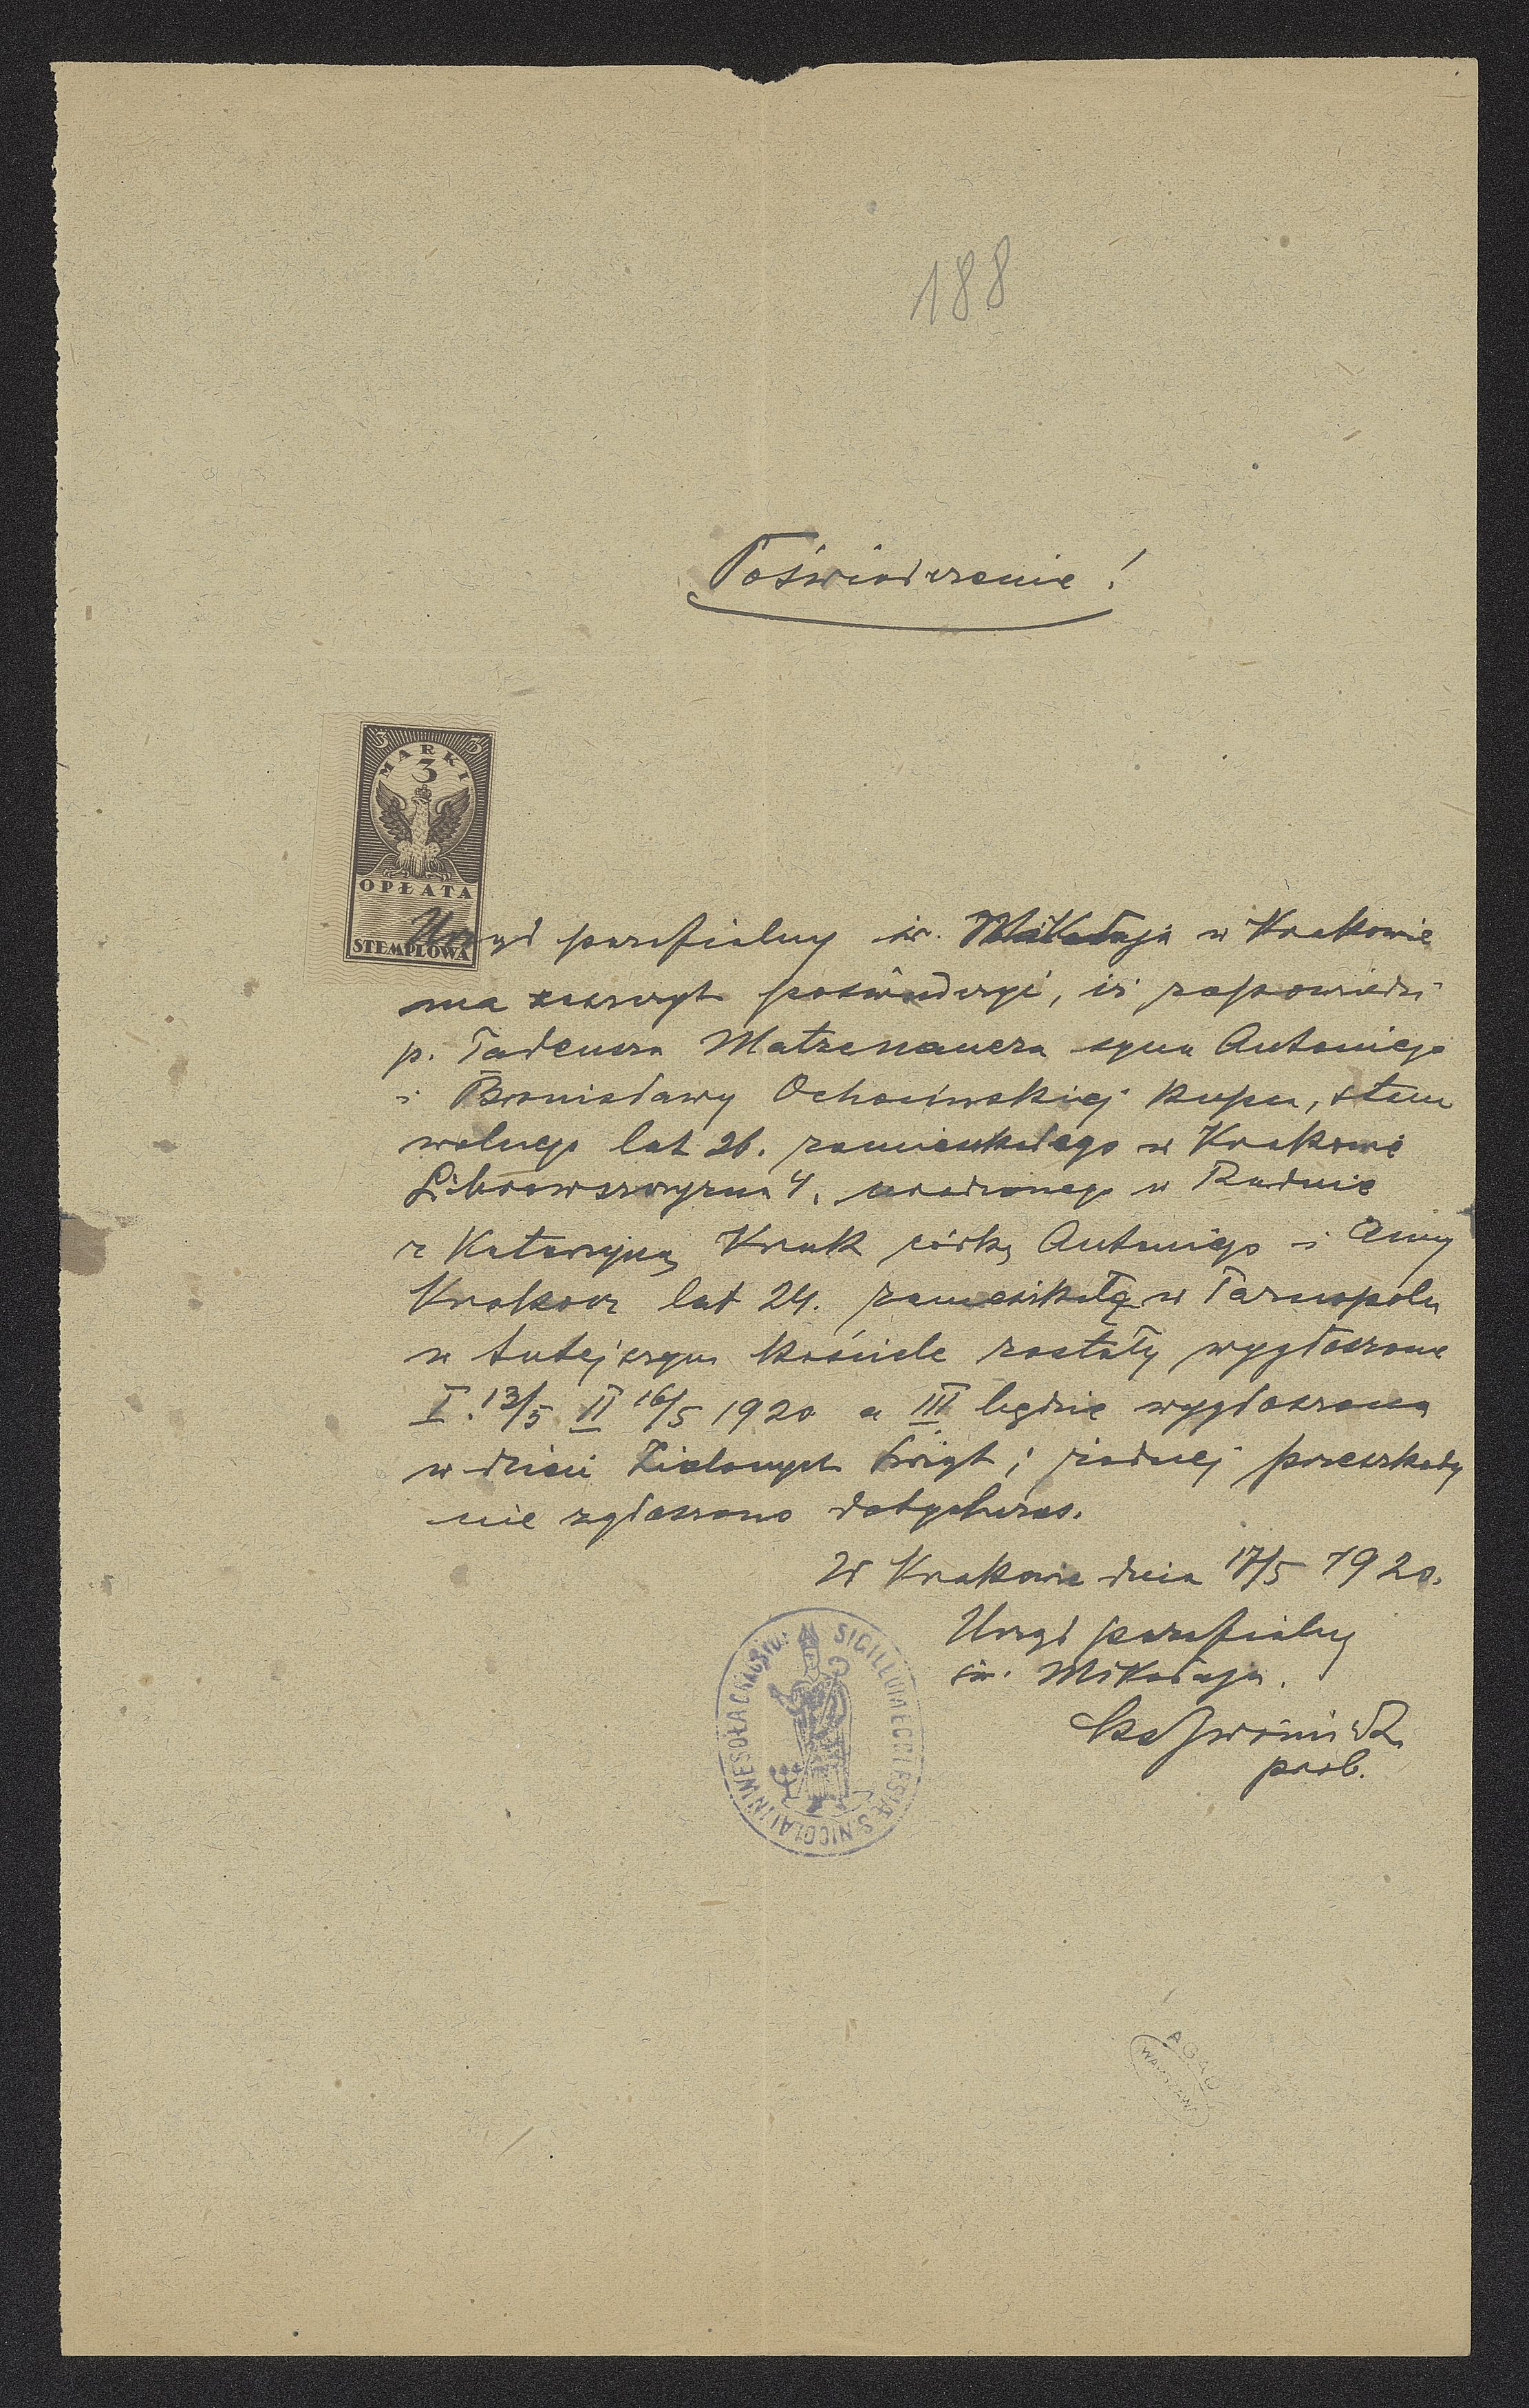 188
Poświadczenie!
3 3
MARKI
3
OPŁATA
STEMPLOWA
Urząd parafialny św. Mikołaja w Krakowie
ma zaszczyt poświadczyć, iż zapowiedzi
p. Tadeusza Matzenauera syna Antoniego
i Bronisławy Ochocińskiej kupca, stanu
wolnego lat 26. zamieszkałego w Krakowie
Librowszczyzna 4, urodzonego w Rudnie
z Katarzyną Kruk córką Antoniego i Anny
lat 24. zamieszkałą w Tarnopolu
w tutejszym kościele zostały wygłoszone
I. 13/5 II 16/5 1920 a III będzie wygłoszona
w dzień Zielonych Świąt; żadnej przeszkody
nie zgłoszono dotychczas.
W Krakowie dnia 17/5 1920.
Urząd parafialny
św. Mikołaja.
prob.
SIGILLUM ECCLESIÆ S. NICOLAI IN WESOŁA
AGAD
WARSZAWA